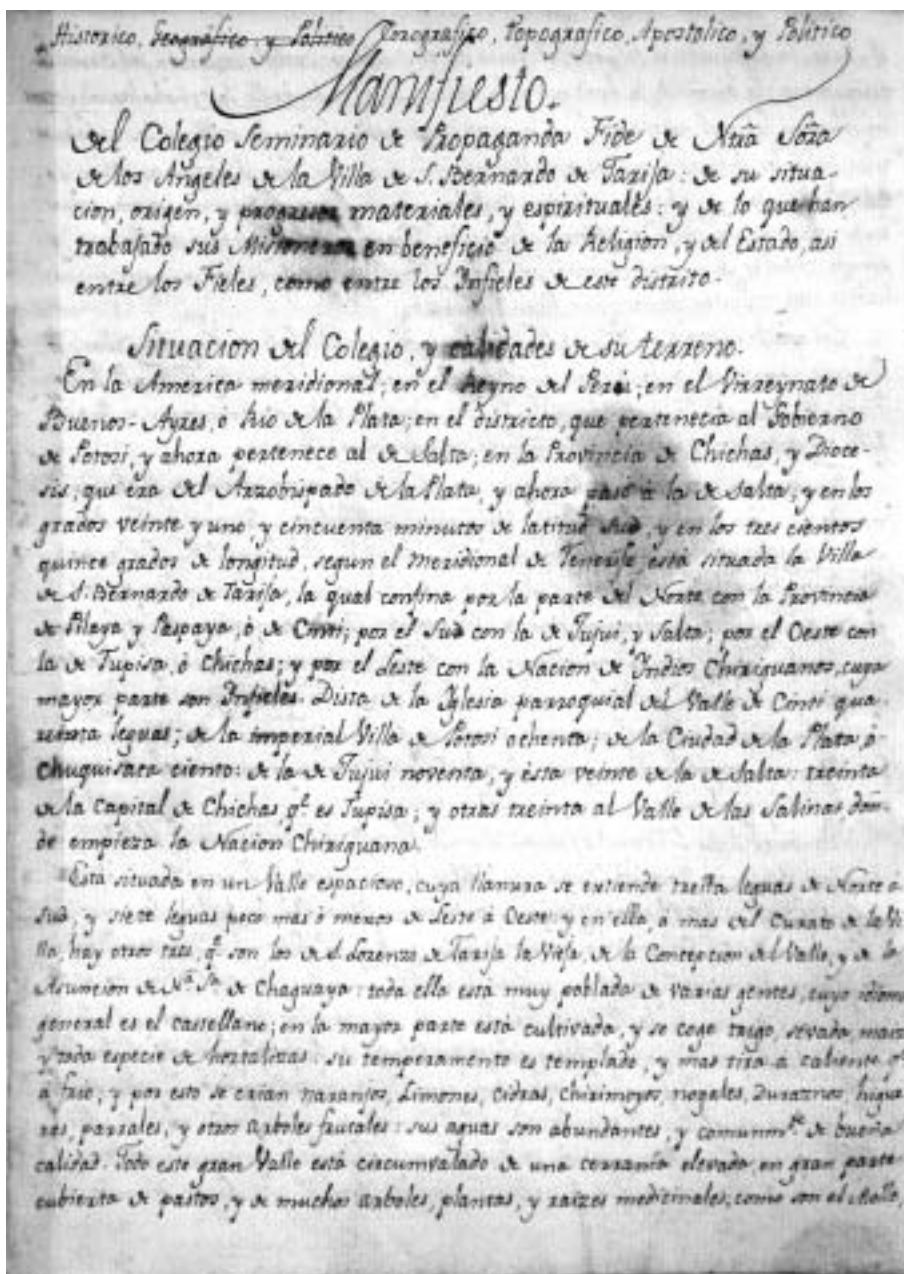 Historico, Geografico, y Politico Corografico, Topografico, Apostolico, y Politico
Manifiesto.
del Colegio Seminario de Propaganda Fide de Ntrã Señrã
de los Angeles de la Villa de S. Bernardo de Tarija: de su situa-
cion, origen, y progresos materiales, y espirituales: y de lo que han
trabajado sus Misioneros en beneficio de la Religion, y del Estado, asi
entre los Fieles, como entre los Infieles de este distrito.
Situacion del Colegio, y calidades de su terreno.
En la America meridional; en el Reyno del Perú; en el Virreynato de
Buenos-Ayres, ó Rio de la Plata; en el districto, que pertenecia al Gobierno
de Potosi, y ahora pertenece al de Salta; en la Provincia de Chichas, y Dioce-
sis, que era del Arzobispado de la Plata, y ahora pasó à la de Salta; y en los
grados veinte y uno, y cincuenta minutos de latitud Sud, y en los tres cientos
quince grados de longitud, segun el meridional de Tenerife està situada la Villa
de S. Bernardo de Tarija, la qual confina por la parte del Norte con la Provincia
de Pilaya y Paspaya, ò de Cinti; por el Sud con la de Jujui, y Salta; por el Oeste con
la de Tupisa, ò Chichas; y por el Leste con la Nacion de Indios Chiriguanos, cuya
mayor parte son Infieles. Dista de la Iglesia parroquial del Valle de Cinti qua-
renta leguas; de la imperial Villa de Potosi ochenta; de la Ciudad de la Plata, ò
Chuquisaca ciento: de la de Jujui noventa, y èsta veinte de la de Salta: treinta
de la Capital de Chichas q.e es Tupisa; y otras treinta al Valle de las Salinas, don-
de empieza la Nacion Chiriguana.
Està situada en un Valle espacioso, cuya llanura se extiende treita leguas de Norte à
Sud, y siete leguas poco mas ò menos de Leste à Oeste: y en ella, à mas del Curato de la Vi
lla, hay otros tres, q.e son los de S. Lorenzo de Tarija la Vieja, de la Concepcion del Valle, y de la
Asuncion de N.a S.a de Chaguaya: toda ella està muy poblada de varias gentes, cuyo idioma
general es el castellano; en la mayor parte està cultivada, y se coge trigo, sevada, maiz
y toda especie de hortalizas: su temperamento es templado, y mas tira à caliente q.e
à frio; y por esto se crian naranjos, Limones, Cidras, Chirimoyos, nogales, Duraznos, higue
res, parrales, y otros arboles frutales: sus aguas son abundantes, y comunm.te de buena
calidad. Todo este gran Valle està circumvalado de una serrania elevada, en gran parte
cubierta de pastos, y de muchos arboles, plantas, y raizes medicinales; como son el Molle,